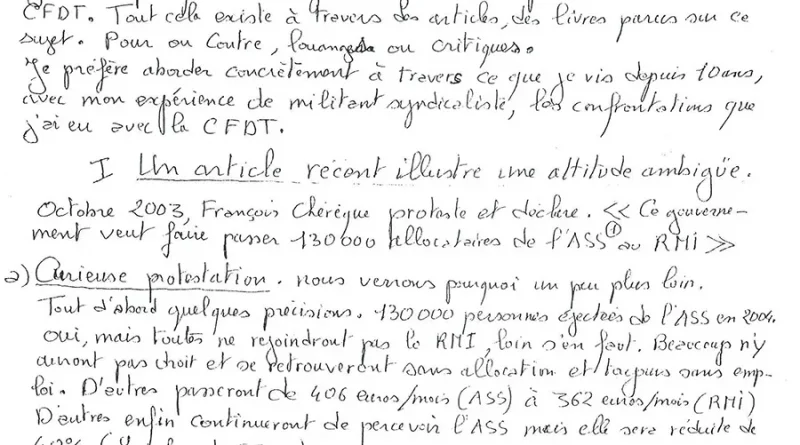 CFDT. Tout cela existe à travers des articles, des livres parus sur ce
sujet. Pour ou Contre, louanges ou critiques.
Je préfère aborder concrètement à travers ce que je vis depuis 10 ans,
avec mon expérience de militant syndicaliste, les confrontations que
j'ai eu avec la CFDT.
I Un article récent illustre une attitude ambigüe.
Octobre 2003, François Chérèque proteste et déclare. << Ce gouverne-
ment veut faire passer 130 000 allocataires de l'ASS ① au RMI >>
a) Curieuse protestation. nous verrons pourquoi un peu plus loin.
Tout d'abord quelques précisions. 130 000 personnes éjectées de l'ASS en 2004.
oui, mais toutes ne rejoindront pas le RMI, loin s'en faut. Beaucoup n'y
auront pas droit et se retrouveront sans allocation et toujours sans emp-
loi. D'autres passeront de 406 euros/mois (ASS) à 362 euros/mois (RMI)
D'autres enfin continueront de percevoir l'ASS mais elle sera réduite de